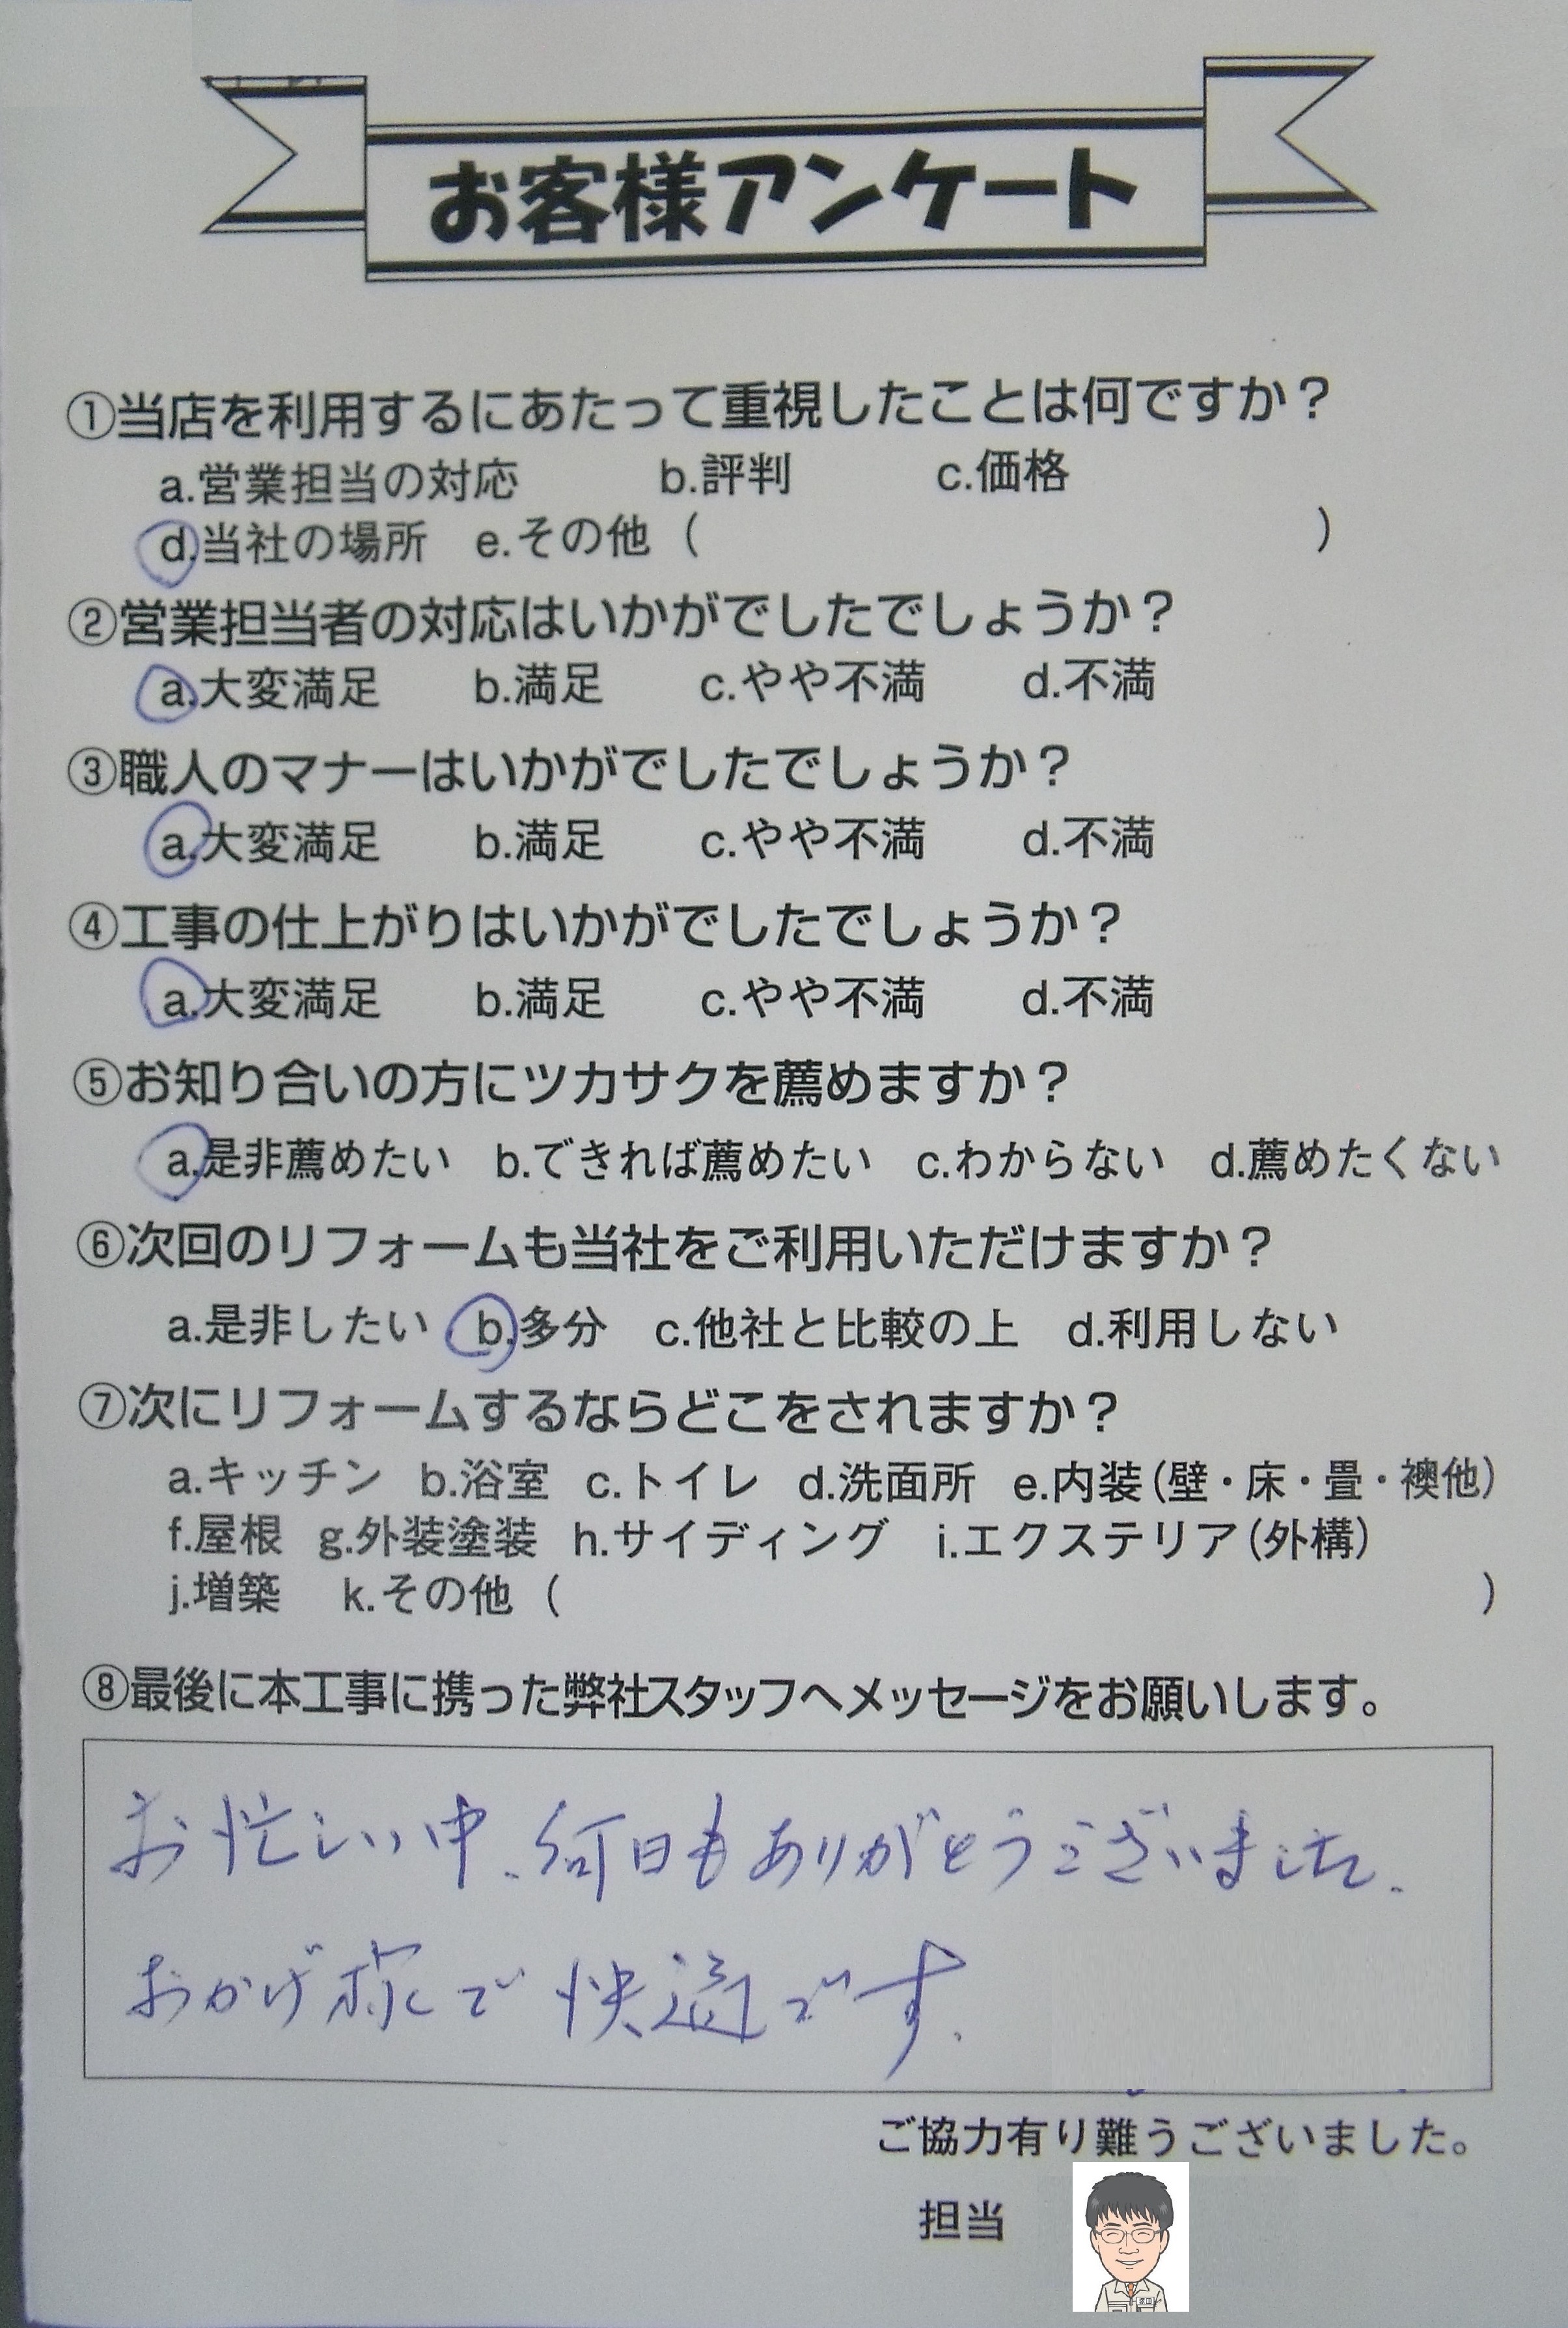 お客様アンケート
①当店を利用するにあたって重視したことは何ですか？
a.営業担当の対応 b.評判 c.価格
d.当社の場所 e.その他（ ）
②営業担当者の対応はいかがでしたでしょうか？
a.大変満足 b.満足 c.やや不満 d.不満
③職人のマナーはいかがでしたでしょうか？
a.大変満足 b.満足 c.やや不満 d.不満
④工事の仕上がりはいかがでしたでしょうか？
a.大変満足 b.満足 c.やや不満 d.不満
⑤お知り合いの方にツカサクを薦めますか？
a.是非薦めたい b.できれば薦めたい c.わからない d.薦めたくない
⑥次回のリフォームも当社をご利用いただけますか？
a.是非したい b.多分 c.他社と比較の上 d.利用しない
⑦次にリフォームするならどこをされますか？
a.キッチン b.浴室 c.トイレ d.洗面所 e.内装（壁・床・畳・襖他）
f.屋根 g.外装塗装 h.サイディング i.エクステリア（外構）
j.増築 k.その他（ ）
⑧最後に本工事に携った弊社スタッフへメッセージをお願いします。
お忙しい中、何日もありがとうございました。
おかげ様で快適です。
ご協力有り難うございました。
担当